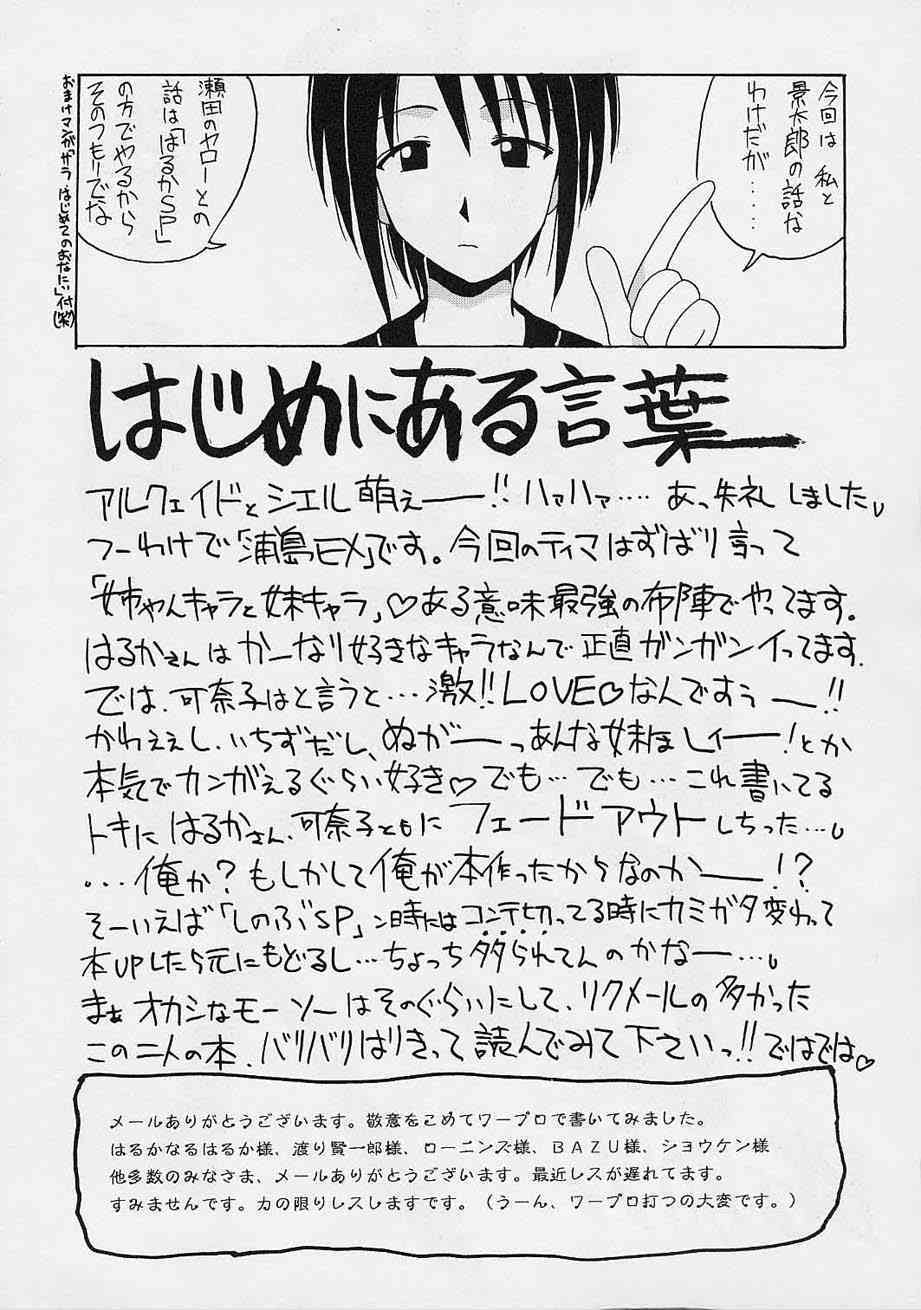 今回は 私と
景太郎の話な
わけだが‥‥
瀬田のヤローとの
話は「はるかSP」
の方でやるから
そのつもりでな
はじめにある言葉
アルクェイドとシエル萌えー!! ハァハァ…… あっ失礼しました
つーわけで「浦島EX」です。今回のティマはずばり言って
「姉ちゃんキャラと妹キャラ」♡ある意味最強の布陣でやってます。
はるかさんはかーなり好きなキャラなんで正直ガンガンイってます。
では、可奈子はと言うと…激!!LOVE♡なんですぅー!!
かわええし、いちずだし、ぬがーっあんな妹ほしィー!とか
本気でカンがえるぐらい好き♡でも…でも…これ書いてる
トキにはるかさん、可奈子ともにフェードアウトしちった…
…俺か?もしかして俺が本作ったからなのかー!?
そーいえば「しのぶSP」ン時にはコンテ切ってる時にカミガタ変わって
本UPしたら元にもどるし…ちょっち祟られてんのかなー…
まぁオカシなモーソーはそのぐらいにして、リクメールの多かった
この二人の本、バリバリはりきって読んでみて下さいっ!!ではでは♡
メールありがとうございます。敬意をこめてワープロで書いてみました。
はるかなるはるか様、渡り賢一郎様、ローニンズ様、ＢＡＺＵ様、ショウケン様
他多数のみなさま、メールありがとうございます。最近レスが遅れてます。
すみませんです。力の限りレスしますです。（うーん、ワープロ打つの大変です。）